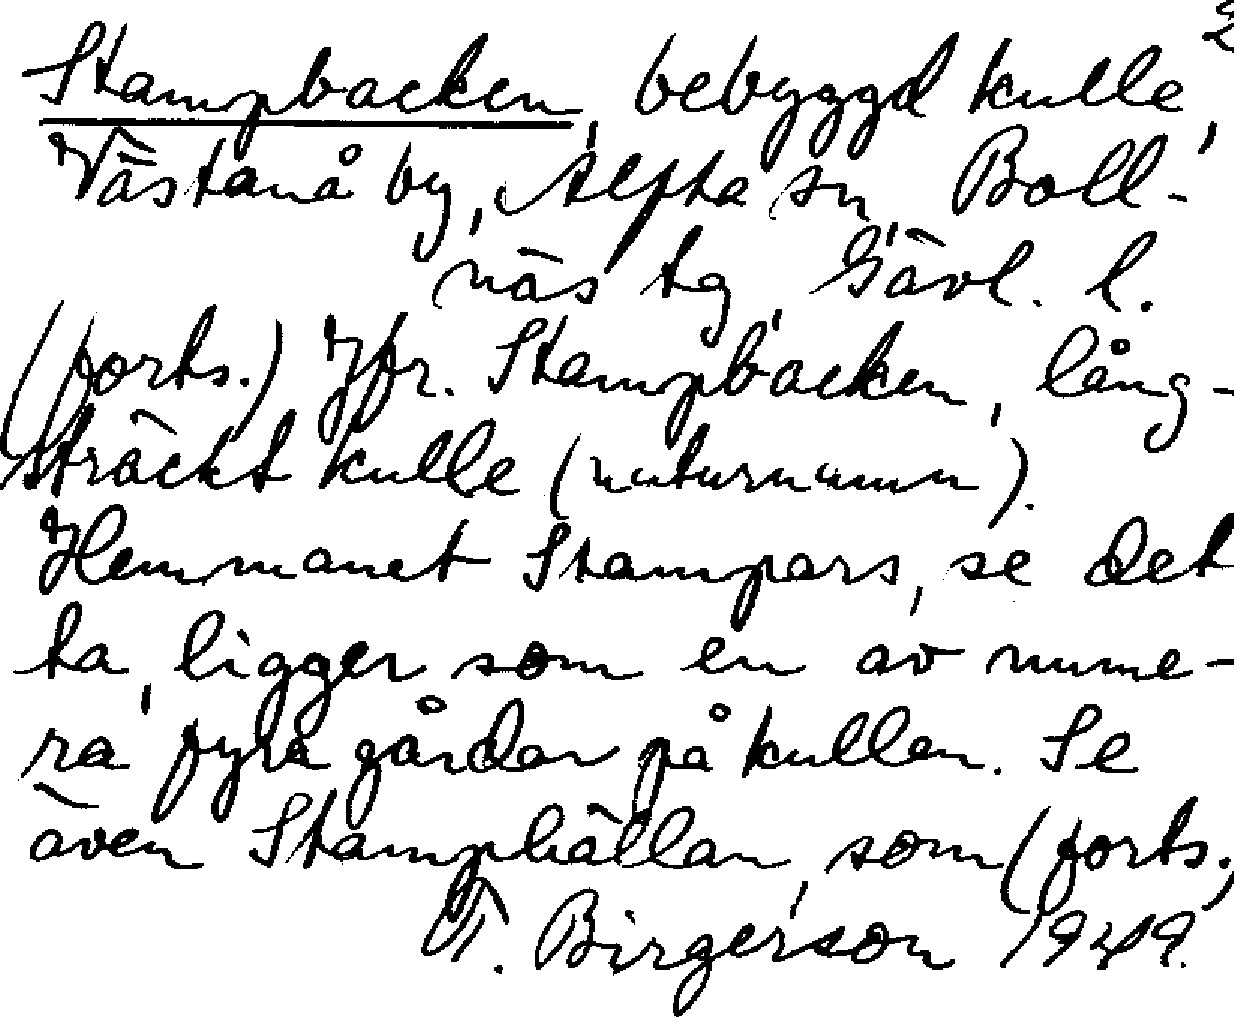 2
Stampbacken, bebyggd kulle,
Västanå by, Alfta sn, Boll-
näs tg, Gävl. l.
(forts.) Jfr. Stampbacken, lång-
sträckt kulle (naturnamn).
Hemmanet Stampars, se det
ta, ligger som en av nume-
ra fyra gårdar på kullen. Se
även Stamphällan, som (forts.)
T. Birgerson 1949.